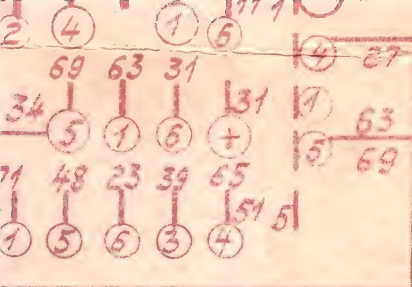 2 4 1 6 4 27
69 63 31 1
34 5 1 6 + 31 5 63
69
71 48 23 39 65
1 5 6 3 4 51 5